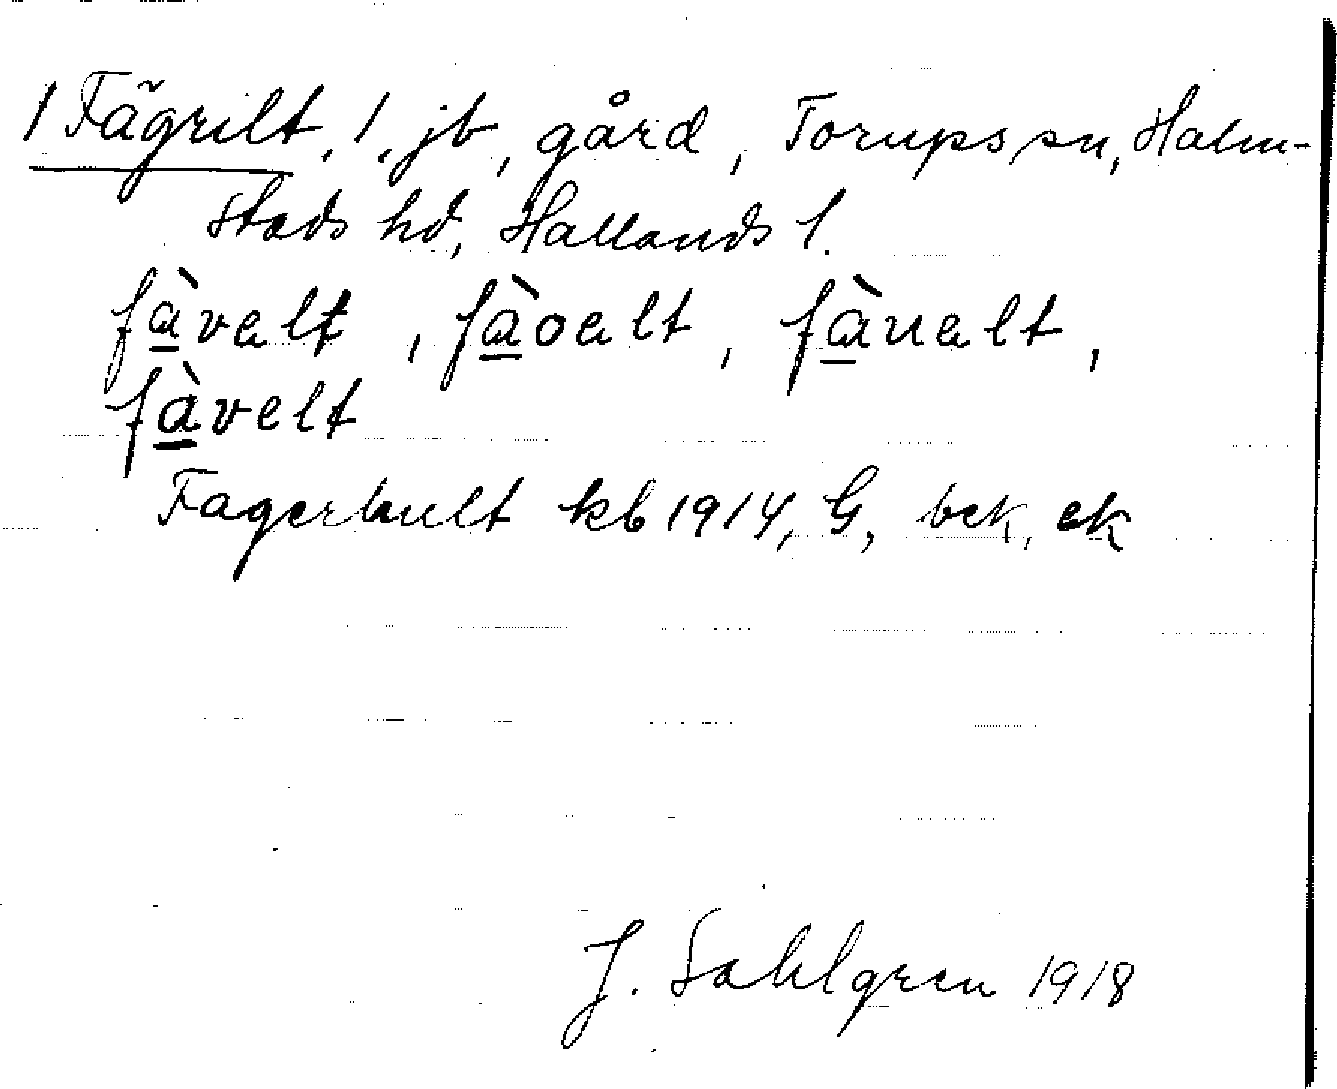 1 Fägrilt, 1, jb, gård, Torups sn, Halm-
stads hd, Hallands l.
fàvalt, fàoalt, fàualt,
fàvelt
Fagerhult kb 1914, G, bek, ek
J. Sahlgren 1918